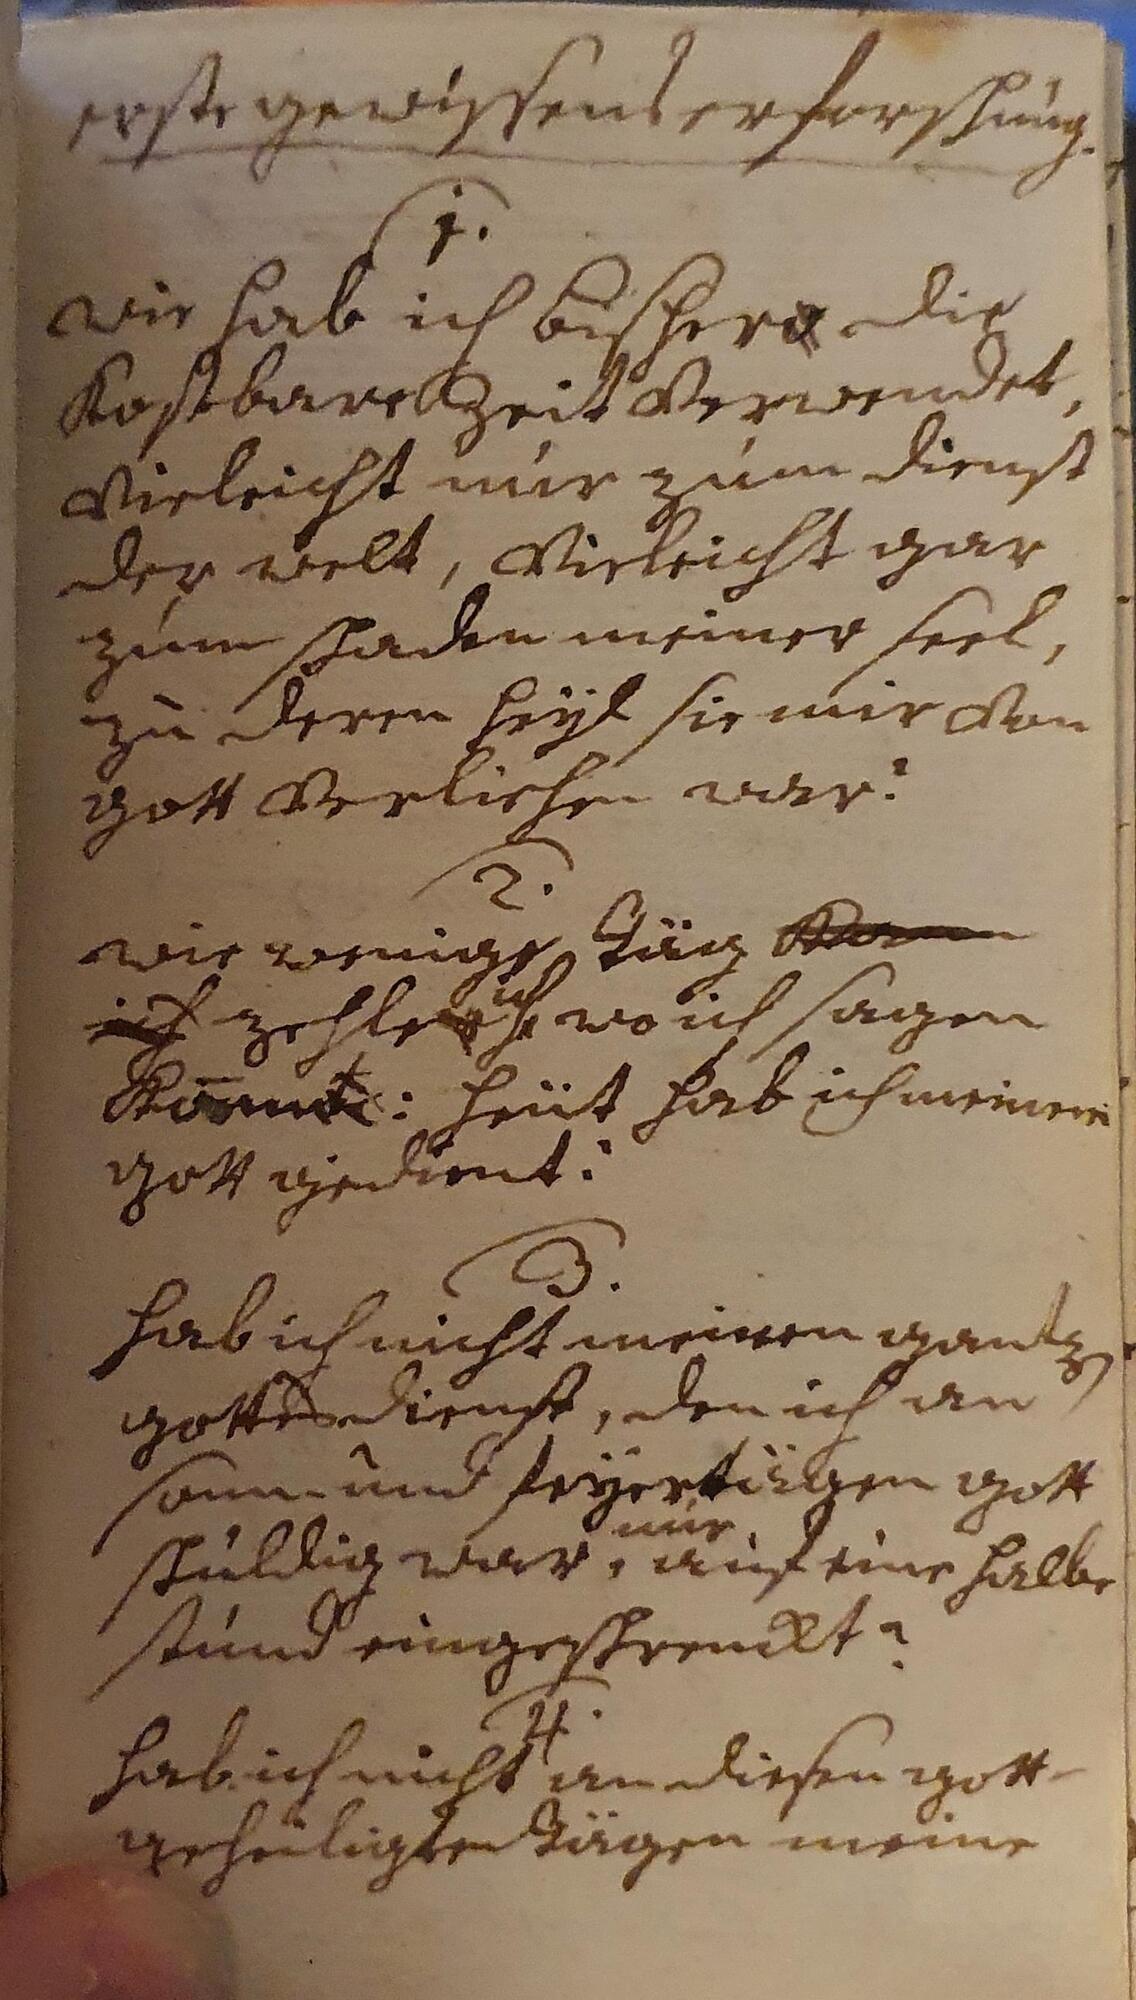 erste gewissens erforschung.
1.
wie hab ich bishero die
Kostbare Zeit Verwendet,
Vieleicht nur zum dienst
der welt, Vieleicht gar
zum schaden meiner seel,
zu deren heÿl sie mir Von
gott Verliehen war?
2.
wie wenige täg
zehle ich, wo ich sagen
Könnt: heüt hab ich meinem
gott gedient?
3.
hab ich nicht meinen gantzen
gottesdienst, den ich an
sonn- und feÿertägen gott
schuldig war, nur auf eine halbe
stund eingeschrenckt?
4.
hab ich nicht an diesen gott-
geheiligten tägen meine